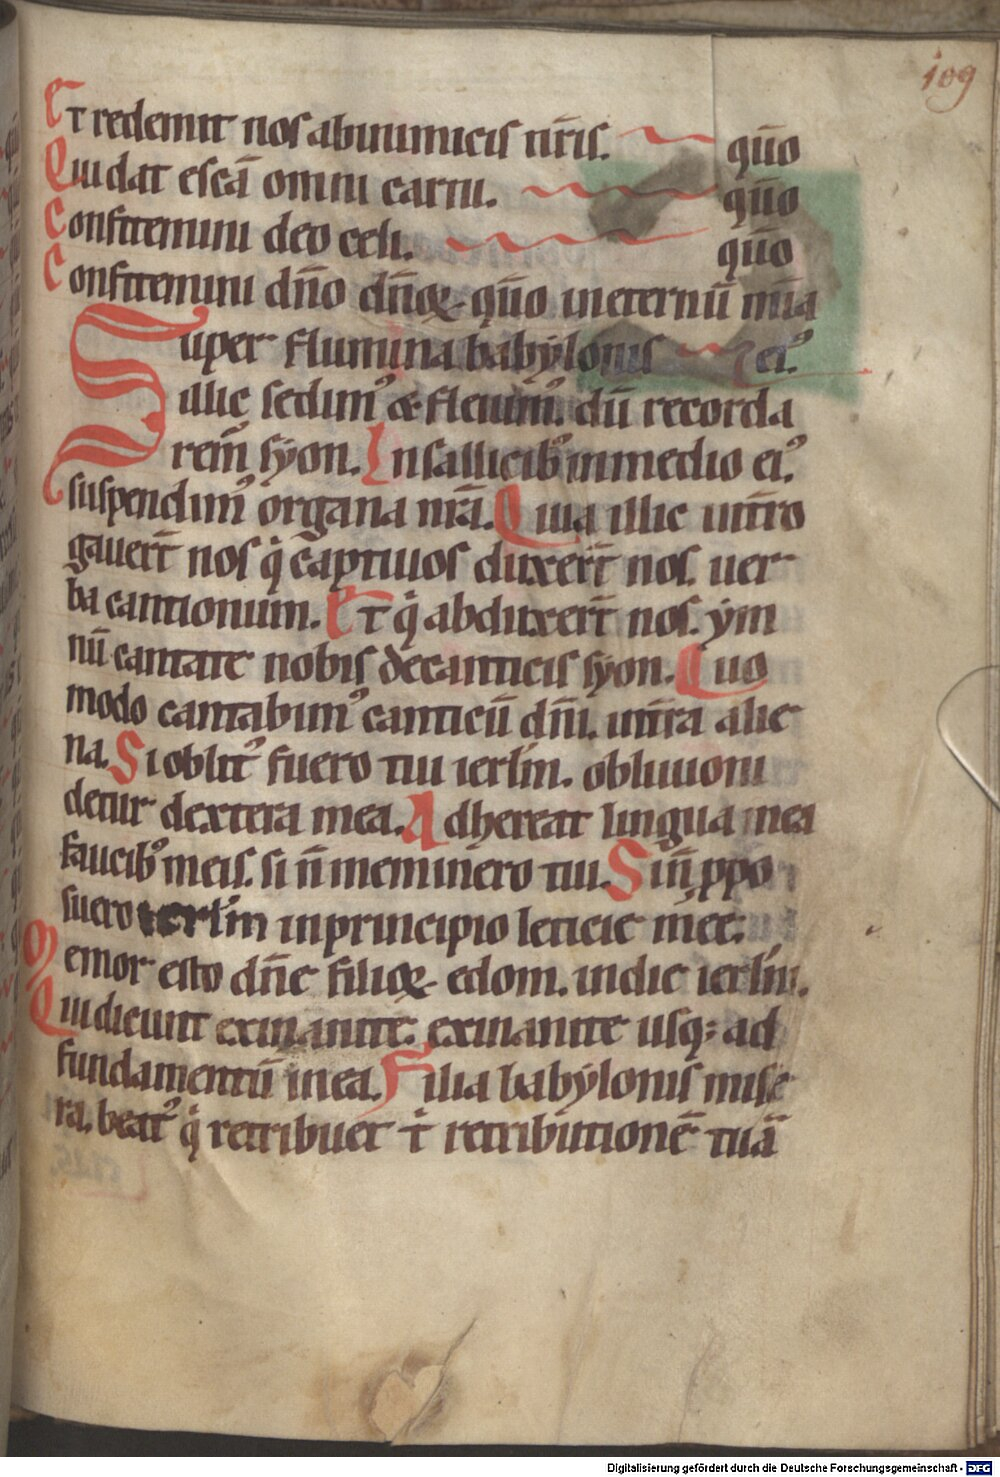 109
Et redemit nos abinimicis nr̄is. qūo
Qui dat escā omni carni. qūo
Confitemini deo celi. qūo
Confitemini dn̄o dn̄oꝝ. qūo ineternū mīa
Super flumina babẏlonis eiꝰ.
illic sedimꝰ & fleuimꝰ. dū recorda
rem̄ sẏon. Insalicibꝰ inmedio eiꝰ.
suspendimꝰ organa nr̄a. Quia illic int̄ro
gauer̄t nos q̇ captiuos duxer̄t nos. uer
ba cantionum. Et q̇ abduxer̄t nos. ẏm
nū cantate nobis decanticis sẏon. Quo
modo cantabimꝰ canticū dn̄i. int̄ra alie
na. Si oblitꝰ fuero tui ierlm̄. obliuioni
detur dextera mea. Adhereat lingua mea
faucibꝰ meis. si n̄ meminero tui. Si n̄ ꝓpo
suero ierlm̄ inprincipio leticie mee.
Memor esto dn̄e filioꝝ edom. indie ierlm̄.
Qui dicunt exinanite. exinanite usq; ad
fundamentū inea. Filia babẏlonis mise
ra. beatꝰ q̇ retribuet t̄ retributionē tuā
Digitalisierung gefördert durch die Deutsche Forschungsgemeinschaft - DFG